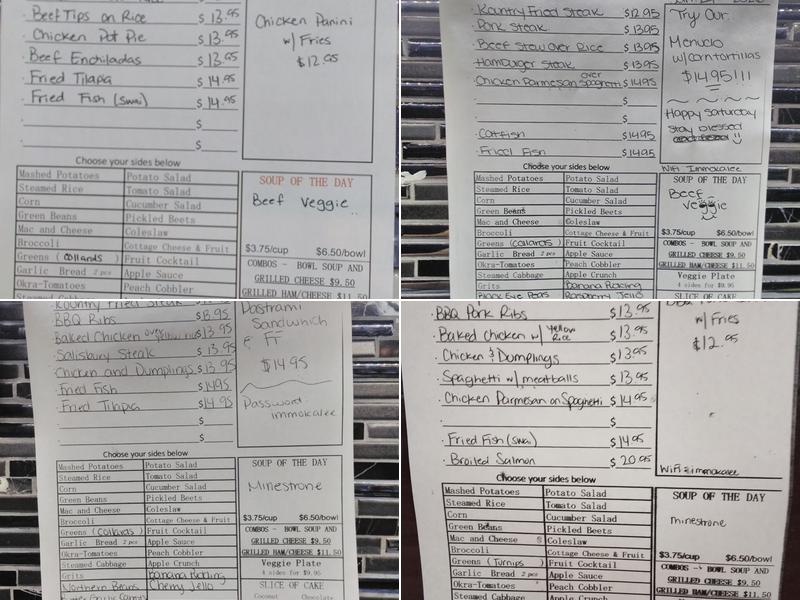 Beef Tips on Rice $13.95
Chicken Pot Pie $13.95
Beef Enchiladas $13.95
Fried Tilapa $14.95
Fried Fish (swai) $14.95
$
$
Chicken Panini
w/ Fries
$12.95
Choose your sides below
Mashed Potatoes Potato Salad
Steamed Rice Tomato Salad
Corn Cucumber Salad
Green Beans Pickled Beets
Mac and Cheese Coleslaw
Broccoli Cottage Cheese & Fruit
Greens (collards) Fruit Cocktail
Garlic Bread 2 pcs Apple Sauce
Okra-Tomatoes Peach Cobbler
Steamed Cabbage Apple Crunch
SOUP OF THE DAY
Beef Veggie
$3.75/cup $6.50/bowl
COMBOS - BOWL SOUP AND
GRILLED CHEESE $9.50
GRILLED HAM/CHEESE $11.50
Kountry Fried Steak $12.95
Pork Steak $13.95
Beef Stew Over Rice $13.95
Hamburger Steak $13.95
Chicken Parmesan over Spaghetti $14.95
$
$
Catfish $14.95
Fried Fish $14.95
Try Our
Menudo
w/corn tortillas
$14.95!!!
Happy Saturday
Stay blessed
Wifi Immokalee
Choose your sides below
Mashed Potatoes Potato Salad
Steamed Rice Tomato Salad
Corn Cucumber Salad
Green Beans Pickled Beets
Mac and Cheese Coleslaw
Broccoli Cottage Cheese & Fruit
Greens (collards) Fruit Cocktail
Garlic Bread 2 pcs Apple Sauce
Okra-Tomatoes Peach Cobbler
Steamed Cabbage Apple Crunch
Grits Banana Pudding
Black Eye Peas Raspberry Jello
SOUP OF THE DAY
Beef
Veggie
$3.75/cup $6.50/bowl
COMBOS - BOWL SOUP AND
GRILLED CHEESE $9.50
GRILLED HAM/CHEESE $11.50
Veggie Plate
4 sides for $9.95
SLICE OF CAKE
Kountry Fried Steak
BBQ Ribs $13.95
Baked Chicken over yellow rice $13.95
Salisbury Steak $13.95
Chicken and Dumplings $13.95
Fried Fish $14.95
Fried Tilapia $14.95
$
$
Pastrami
Sandwhich
& FF
$14.95
Password
immokalee
Choose your sides below
Mashed Potatoes Potato Salad
Steamed Rice Tomato Salad
Corn Cucumber Salad
Green Beans Pickled Beets
Mac and Cheese Coleslaw
Broccoli Cottage Cheese & Fruit
Greens (collards) Fruit Cocktail
Garlic Bread 2 pcs Apple Sauce
Okra-Tomatoes Peach Cobbler
Steamed Cabbage Apple Crunch
Grits Banana Pudding
Northern Beans Cherry Jello
SOUP OF THE DAY
Minestrone
$3.75/cup $6.50/bowl
COMBOS - BOWL SOUP AND
GRILLED CHEESE $9.50
GRILLED HAM/CHEESE $11.50
Veggie Plate
4 sides for $9.95
SLICE OF CAKE
Coconut Chocolate
BBQ Pork Ribs $13.95
Baked Chicken w/ Yellow Rice $13.95
Chicken & Dumplings $13.95
Spaghetti w/ meatballs $13.95
Chicken Parmesan on Spaghetti $14.95
$
Fried Fish (swai) $14.95
Broiled Salmon $20.95
w/ Fries
$12.95
WiFi = immokalee
Choose your sides below
Mashed Potatoes Potato Salad
Steamed Rice Tomato Salad
Corn Cucumber Salad
Green Beans Pickled Beets
Mac and Cheese Coleslaw
Broccoli Cottage Cheese & Fruit
Greens (Turnips) Fruit Cocktail
Garlic Bread 2 pcs Apple Sauce
Okra-Tomatoes Peach Cobbler
Steamed Cabbage Apple Crunch
SOUP OF THE DAY
minestrone
$3.75/cup $6.50/bowl
COMBOS -> BOWL SOUP AND
GRILLED CHEESE $9.50
GRILLED HAM/CHEESE $11.50
Veggie Plate